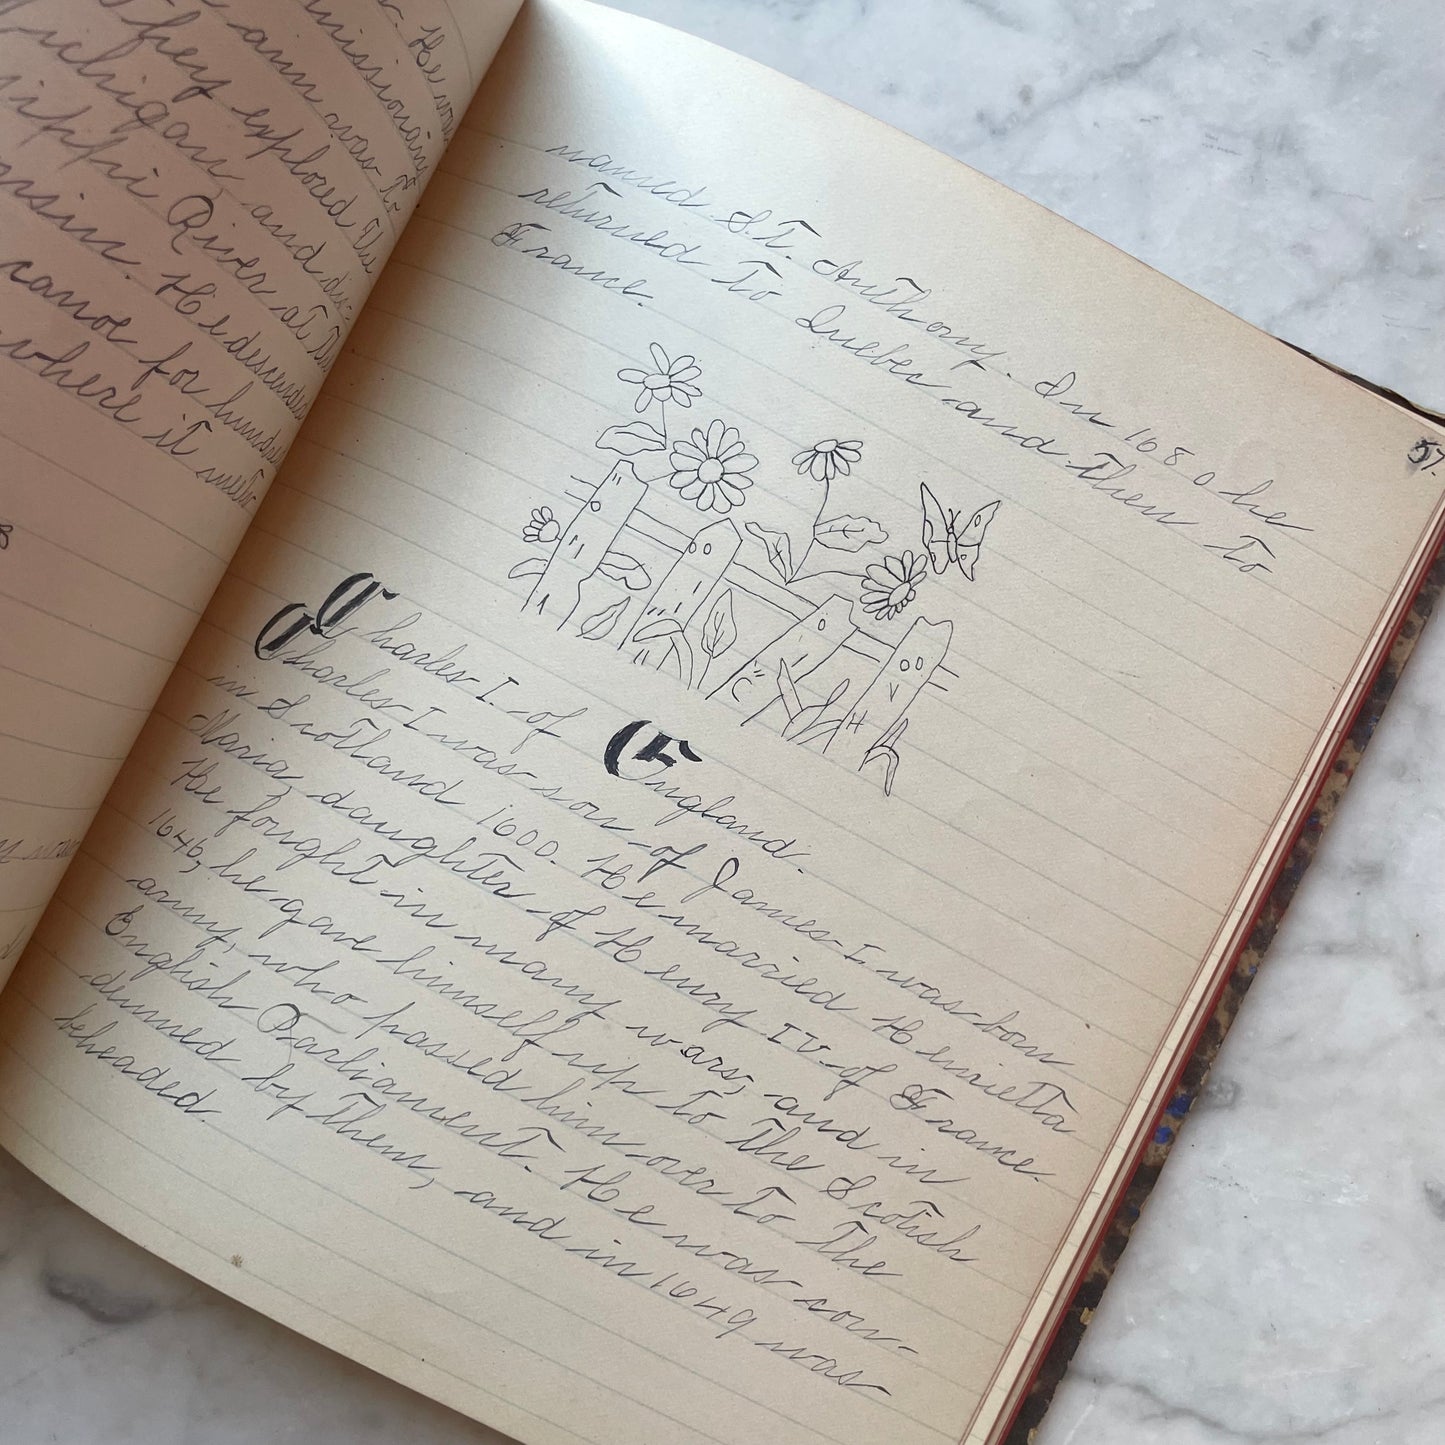 . He was
missionary
aim was to
They explored the
ichigan, and dis-
sippi River at the
onsin. He descended
canoe for hundred
where it meets
named S.T. Anthony. In 1680 he
returned to Quebec and then to
France.
57.
Charles I. of England.
Charles I was son of James I was born
in Scotland 1600. He married Henrietta
Maria, daughter of Henry IV of France.
He fought in many wars, and in
1646, he gave himself up to the Scotish
army, who passed him over to the
English Parliament. He was con-
demned by them, and in 1649 was
beheaded.